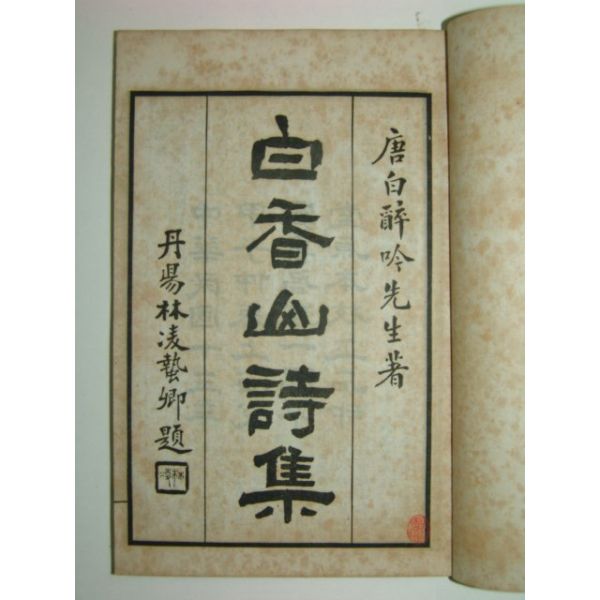 唐白醉吟先生著
白香山詩集
丹陽林淩蟄卿題